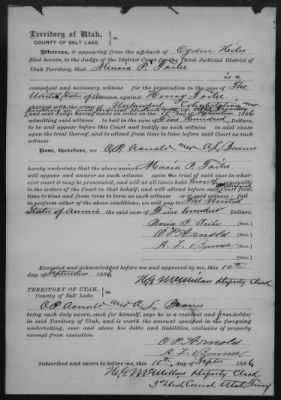 Territory of Utah,
COUNTY OF SALT LAKE.
Whereas, it appearing from the affidavit of Ogden Hiles
filed herein, to the Judge of the District Court for the Third Judicial District of
Utah Territory, that Maria P.
is a
competent and necessary witness for the prosecution in the case of The
United States of America, against
Unlawful Cohabitation now
and said Judge having made an order on the 10th of September 1886
admitting said witness to bail in the sum of Five Hundred Dollars,
to be and appear before this Court and testify as such witness in said cause
upon the trial thereof, and to attend from time to time before said Court as such
Witness
Now, therefore, we O.P. Arnold and
hereby undertake that the above named Maria P.
will appear and answer as such witness upon the trial of said case in what-
ever court it may be prosecuted, and will at all times hold herself amenable
to the orders of the Court in that behalf, and will attend before said Court from
day to day and from term to term as such witness or if said witness fail
to perform either of the above conditions, we will pay to The United
States of America the said sum of Five hundred Dollars.
Maria P. [Seal.]
O P Arnold [Seal.]
[Seal.]
[Seal.]
Executed and acknowledged before me and approved by me, this 10th
day of September 1886
H G McMillan Deputy Clerk
TERRITORY OF UTAH,
County of Salt Lake
O.P. Arnold and
being each duly sworn, each for himself, says he is a resident and freeholder
in said Territory of Utah, and is worth the amount specified in the foregoing
undertaking, over and above his debts and liabilities, exclusive of property
exempt from execution.
O P Arnold
Subscribed and sworn to before me, this 10th day of Septr 1886
H G McMillan Deputy Clerk
3d Dist Court Utah Terry